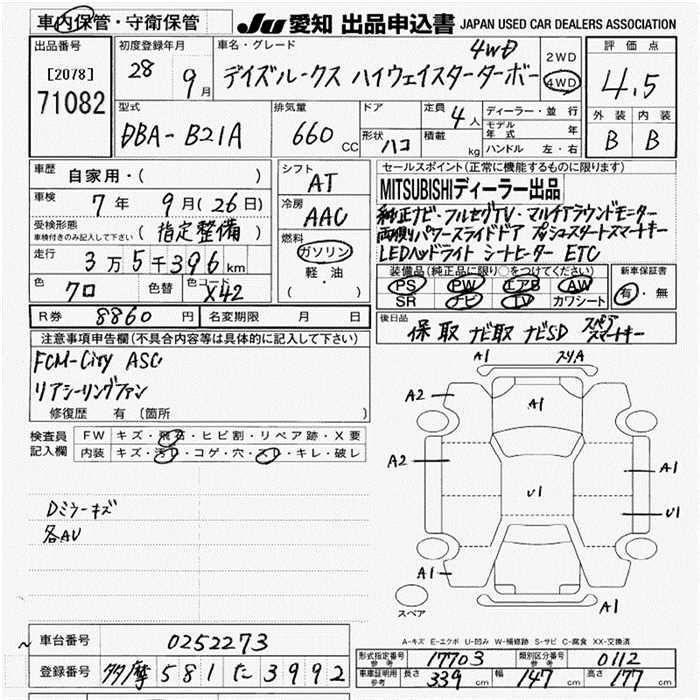 車内保管・守衛保管 JU 愛知 出品申込書 JAPAN USED CAR DEALERS ASSOCIATION
出品番号 [2078] 71082
初度登録年月 28 9月
車名・グレード 4WD デイズルークス ハイウェイスターターボー
2WD 4WD
評価点 4.5
外装 内装
B B
型式 DBA-B21A
排気量 660 CC
ドア 形状 ハコ
定員 4人
積載 kg
ディーラー・並行
モデル年式 年
ハンドル 左・右
車歴 自家用・( )
車検 7年 9月(26日)
受検形態 車検付きのみ記入して下さい (指定整備)
走行 3万5千396km
色 クロ 色替 色コード X42
シフト AT
冷房 AAC
燃料 ガソリン 軽・油 ( )
セールスポイント(正常に機能するものに限ります)
MITSUBISHIディーラー出品
純正ナビ・フルセグTV・マルチアラウンドモニター
両側パワースライドドア プッシュスタートスマートキー
LEDヘッドライト シートヒーター ETC
装備品(純正品に限り○をつけてください) 新車保証書
PS PW エアB AW 有・無
SR ナビ TV カワシート
R券 8860円 名変期限 月 日
後日品 保 取 ナビ取 ナビSD スペアスマートキー
注意事項申告欄(不具合内容等は具体的に記入して下さい)
FCM-City ASC
リアシーリングファン
修復歴 有 〔箇所 〕
検査員記入欄
FW キズ・飛石・ヒビ割・リペア跡・X要
内装 キズ・汚レ・コゲ・穴・スレ・キレ・破レ
Dミラーキズ
各AU
A1 スリA
A2 A1
A2 A1
U1 U1
A1 A1
スペア
A-キズ E-エクボ U-凹み W-補修跡 S-サビ C-腐食 XX-交換済
車台番号 0252273
登録番号 多摩 581 た 3992
形式指定番号 参考 17703 類別区分番号 参考 0112
車庫証明用 参考 長さ 339 cm 幅 147 cm 高さ 177 cm